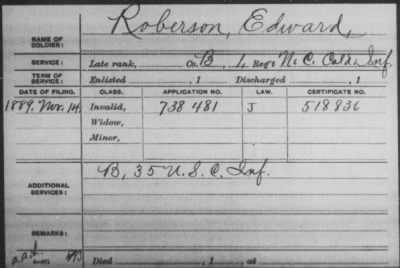 Roberson, Edward,
NAME OF SOLDIER:
SERVICE: Late rank, Co. B, 1, Reg't N. C. Cold. Inf.
TERM OF SERVICE: Enlisted , 1 Discharged , 1
DATE OF FILING. CLASS. APPLICATION NO. LAW. CERTIFICATE NO.
1889. Nov. 14. Invalid, 738 481 J 518836
Widow,
Minor,
B, 35 U.S.C. Inf.
ADDITIONAL SERVICES:
REMARKS:
Died , 1 , at